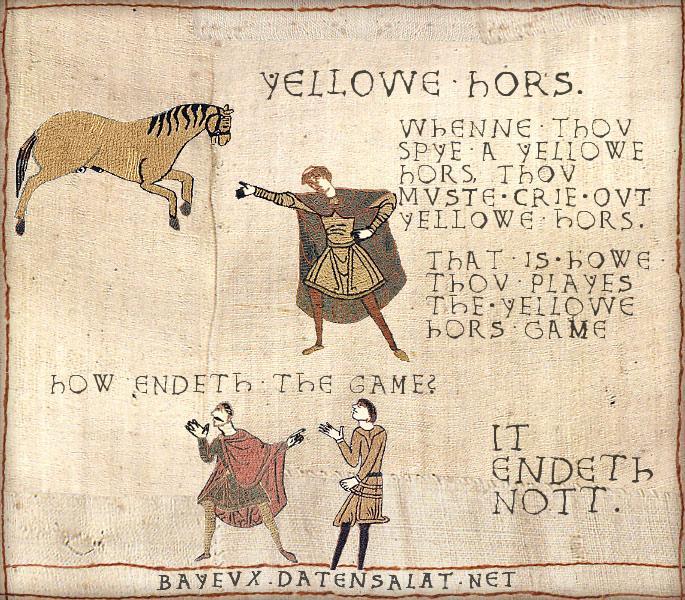 YELLOWE · hORS.
WhENNE · ThOV
SPYE · A YELLOWE
hORS, ThOV
MVSTE · CRIE · OVT
YELLOWE · hORS.
ThAT · IS · hOWE ·
ThOV · PLAYES
ThE · YELLOWE
hORS GAME
hOW ENDETh · ThE GAME?
IT
ENDETh
NOTT.
BAYEVX.DATENSALAT.NET